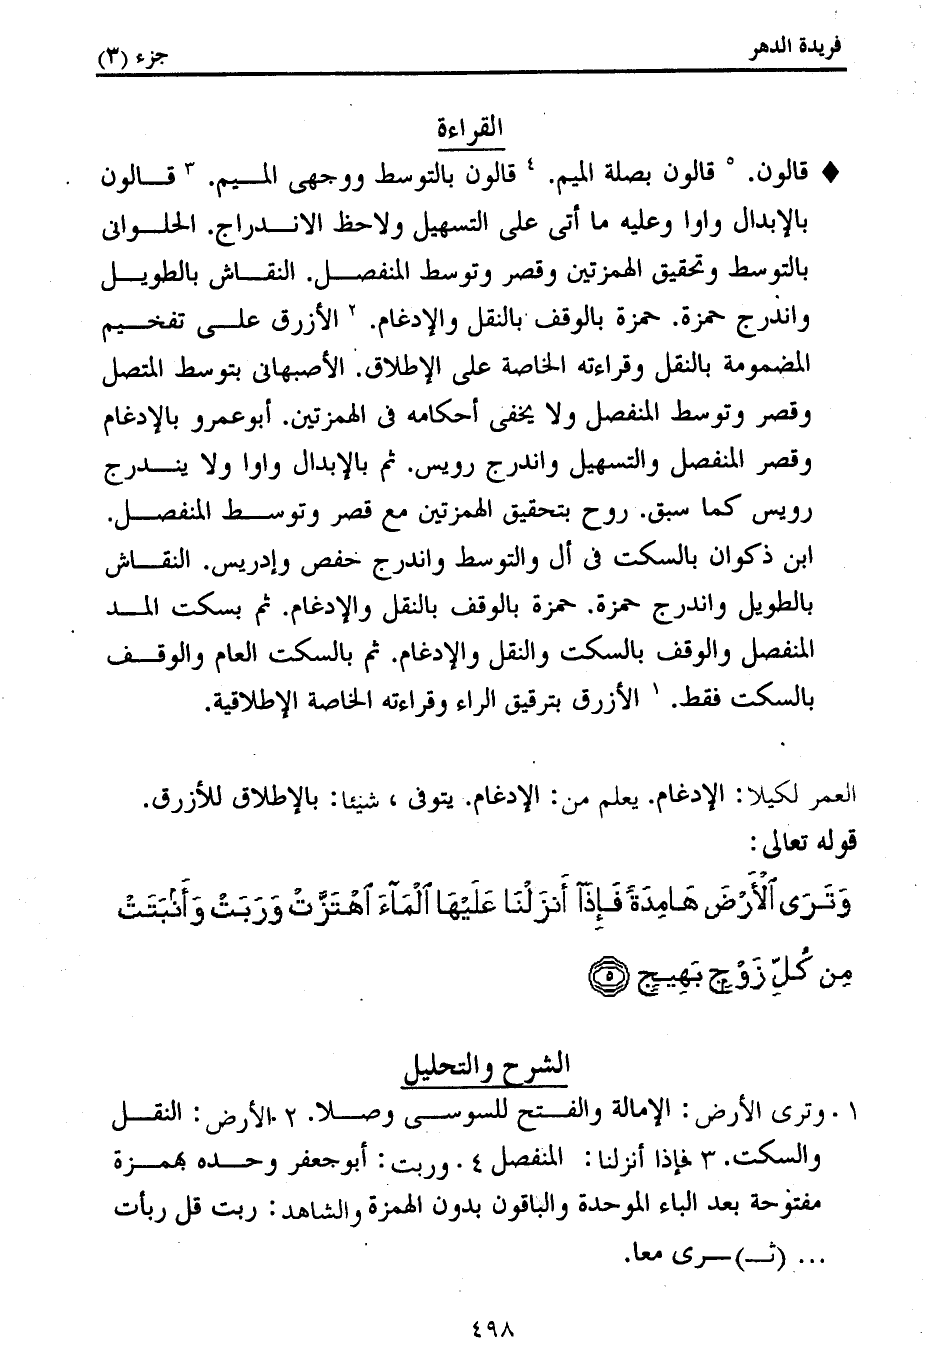 فريدة الدهر
جزء (٣)
القراءة
♦ قالون. ٥ قالون بصلة الميم. ٤ قالون بالتوسط ووجهى المــيم. ٣ قــالون
بالإبدال واوا وعليه ما أتى على التسهيل ولاحظ الانــدراج. الحلــوانى
بالتوسط وتحقيق الهمزتين وقصر وتوسط المنفصــل. النقــاش بالطويــل
واندرج حمزة. حمزة بالوقف بالنقل والإدغام. ٢ الأزرق علــى تفخــيم
المضمومة بالنقل وقراءته الخاصة على الإطلاق. الأصبهانى بتوسط المتصل
وقصر وتوسط المنفصل ولا يخفى أحكامه فى الهمزتين. أبوعمرو بالإدغام
وقصر المنفصل والتسهيل واندرج رويس. ثم بالإبدال واوا ولا ينــدرج
رويس كما سبق. روح بتحقيق الهمزتين مع قصر وتوســط المنفصــل.
ابن ذكوان بالسكت فى أل والتوسط واندرج حفص وإدريس. النقــاش
بالطويل واندرج حمزة. حمزة بالوقف بالنقل والإدغام. ثم بسكت المــد
المنفصل والوقف بالسكت والنقل والإدغام. ثم بالسكت العام والوقــف
بالسكت فقط. ١ الأزرق بترقيق الراء وقراءته الخاصة الإطلاقية.
العمر لكيلا: الإدغام. يعلم من: الإدغام. يتوفى ، شيئا: بالإطلاق للأزرق.
قوله تعالى:
وَتَرَى ٱلْأَرْضَ هَامِدَةً فَإِذَآ أَنزَلْنَا عَلَيْهَا ٱلْمَآءَ ٱهْتَزَّتْ وَرَبَتْ وَأَنۢبَتَتْ
مِن كُلِّ زَوْجٍۭ بَهِيجٍ ٥
الشرح والتحليل
١. وترى الأرض: الإمالة والفــتح للسوســى وصــلا. ٢. الأرض: النقــل
والسكت. ٣ فإذا أنزلنا: المنفصل ٤. وربت: أبوجعفر وحــده بهمــزة
مفتوحة بعد الباء الموحدة والباقون بدون الهمزة والشاهد: ربت قل ربأت
... (ثــ)ــرى معا.
٤٩٨